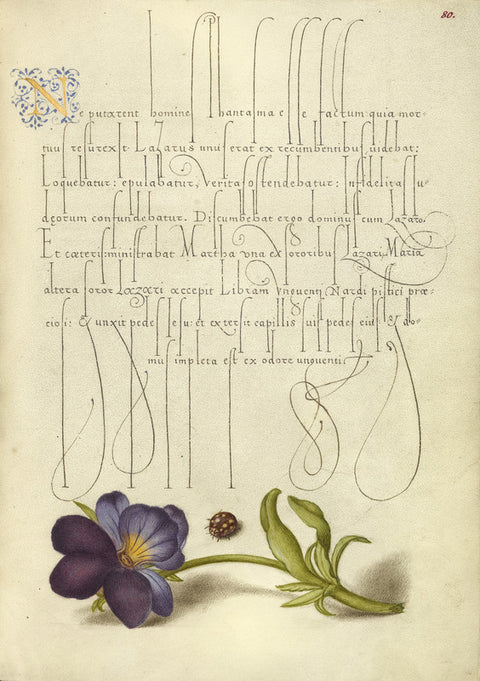 80.
Ne putarent homines phantasma esse factum quia mor-
tuus resurexit. Lazarus unus erat ex recumbentibus, uidebat:
Loquebatur: epulabatur, veritas ostendebatur: infidelitas Iu-
dęorum confundebatur. Discumbebat ergo dominus cum Lazaro
Et cæteris: ministrabat Martha vna ex sororibus Lazari. Maria
altera soror Lazari accepit Libram vnguenti, Nardi pistici præ-
ciosi: & vnxit pedes Iesu: et extersit capillis suis pedes eius & do-
mus impleta est ex odore unguenti.